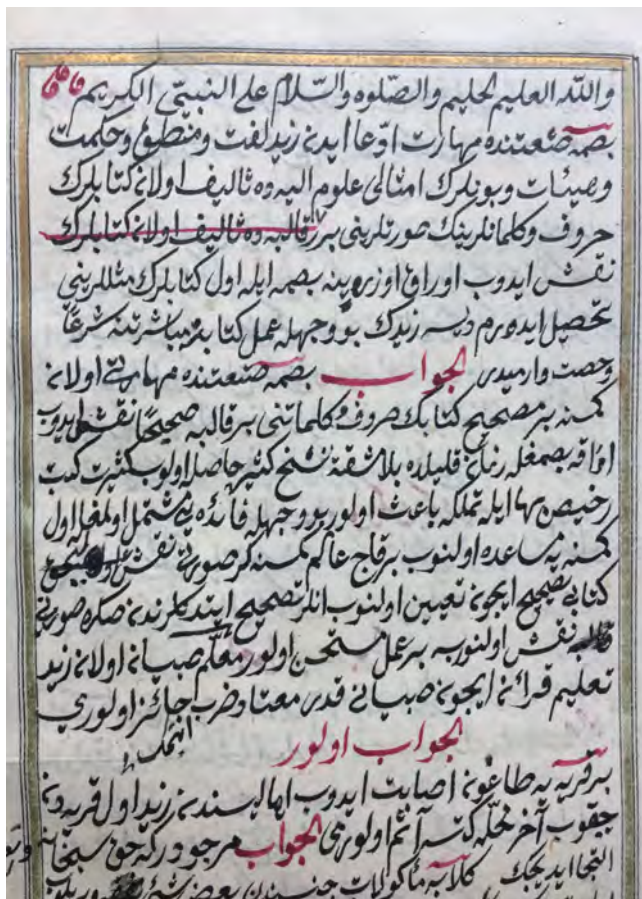 والله العليم الحليم والصلوه والسلام على النبيى الكريم
بصمه صنعتنده مهارت ادعا ايدن زيد لغت و منطق و حكمت
و هيئات و بونلرك امثالى علوم اليه ده تاليف اولان كتابلرك
حروف و كلماتلرينك صورتلرينى بر قالبه ده تاليف اولان كتابلرك
نقش ايدوب اوراق اوزرينه بصمه ايله اول كتابلرك مثللرينى
تحصيل ايده رم ديسه زيدك بو وجهله عمل كتابه مباشرتنه شرعا
رخصت وارميدر الجواب بصمه صنعتنده مهارتى اولان
كمسنه بر مصحح كتابك حروف و كلماتنى بر قالبه صحيحا نقش ايدوب
اوراقه بصمغله زمان قليلده بلا مشقة نسخ كثيره حاصله اولوب كثرت كتب
رخيص بها ايله تملكه باعث اولور بو وجهله فائده يى مشتمل اولمغله اول
كمسنه يه مساعده اولنوب بر قاچ عالم كمسنه لر صورتى نقش
كتابى تصحيح ايچون تعيين اولنوب انلر تصحيح ايتدكلرندن صكره صورتى
قالبه نقش اولنورسه بر عمل مستحسن اولور معلم صبيان اولان زيد
تعليم قرائه ايچون صبيانى قدر معتاد ضرب جائز اولورمى
الجواب اولور
بر قريه يه طاعون اصابت ايدوب اهاليسندن زيد اول قريه دن
چقوب آخر محله كتسه آثم اولورمى الجواب مرجودر كه حق سبحانه و
التجا ايديجك كلابه مأكولات جنسندن بعض شئ